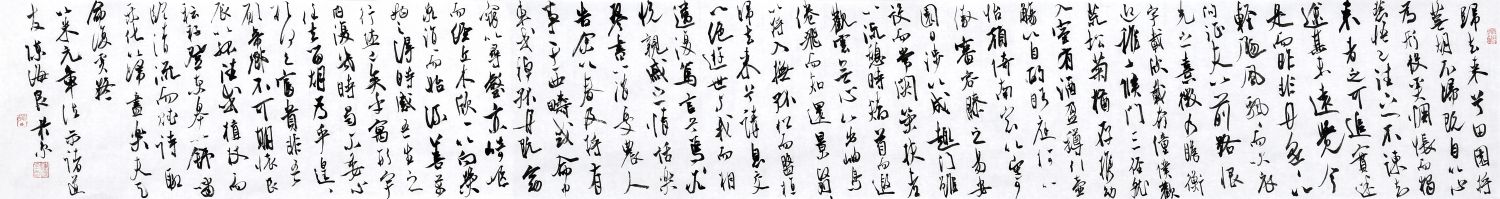 歸去来兮田園將
蕪胡不歸既自以心
為形役奚惆悵而獨
悲悟已往之不諫知
来者之可追實迷
途其未遠覺今
是而昨非舟遙以
輕颺風飄而吹衣
问征夫以前路恨
晨光之熹微乃瞻衡
宇載欣載奔僮僕歡
迎稚子候門三徑就
荒松菊猶存携幼
入室有酒盈樽引壺
觴以自酌眄庭柯以
怡顏倚南窗以寄
傲審容膝之易安
園日涉以成趣門雖
設而常關策扶老
以流憩時矯首而遐
觀雲無心以出岫鳥
倦飛而知還景翳翳
以將入撫孤松而盤桓
歸去来兮請息交
以絕遊世與我而相
違復駕言兮焉求
悦親戚之情話樂
琴書以消憂農人
告余以春及將有
事于西疇或命巾
車或棹孤舟既窈
窕以尋壑亦崎嶇
而經丘木欣欣以向榮
泉涓涓而始流善萬
物之得時感吾生之
行休已矣乎寓形宇
内復幾時曷不委心
任去留胡為乎遑遑
欲何之富貴非吾
願帝鄉不可期懷良
辰以孤往或植杖而
耘耔登東皋以舒嘯
臨清流而赋詩聊
乘化以歸盡樂夫天
命復奚疑
友陈海良